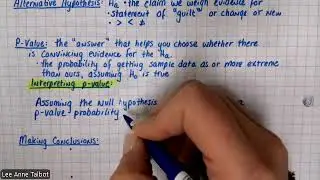 Alternative Hypothesis: Ha • the claim we weigh evidence for
• statement of "guilt" or change or new
• > < ≠
P-Value: the "answer" that helps you choose whether there
is convincing evidence for the Ha
• the probability of getting sample data as or more extreme
than ours, assuming Ho is true
Interpreting p-value:
Assuming the null hypothesis
p-value probability
Making Conclusions:
Lee Anne Talbot